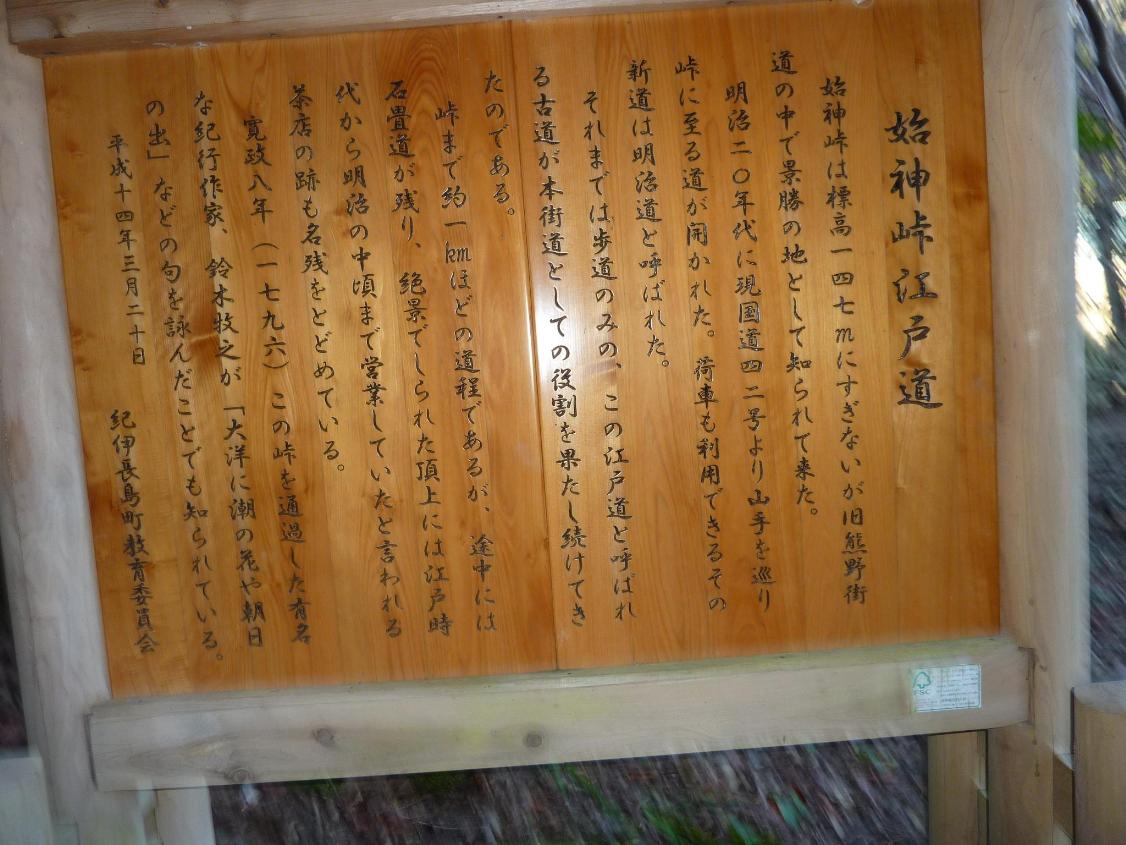 始神峠江戸道
始神峠は標高一四七mにすぎないが旧熊野街
道の中で景勝の地として知られて来た。
明治二〇年代に現国道四二号より山手を巡り
峠に至る道が開かれた。荷車も利用できるその
新道は明治道と呼ばれた。
それまでは歩道のみの、この江戸道と呼ばれ
る古道が本街道としての役割を果たし続けてき
たのである。
峠まで約一kmほどの道程であるが、途中には
石畳道が残り、絶景でしられた頂上には江戸時
代から明治の中頃まで営業していたと言われる
茶店の跡も名残をとどめている。
寛政八年（一七九六）この峠を通過した有名
な紀行作家、鈴木牧之が「大洋に潮の花や朝日
の出」などの句を詠んだことでも知られている。
平成十四年三月二十日　紀伊長島町教育委員会
FSC